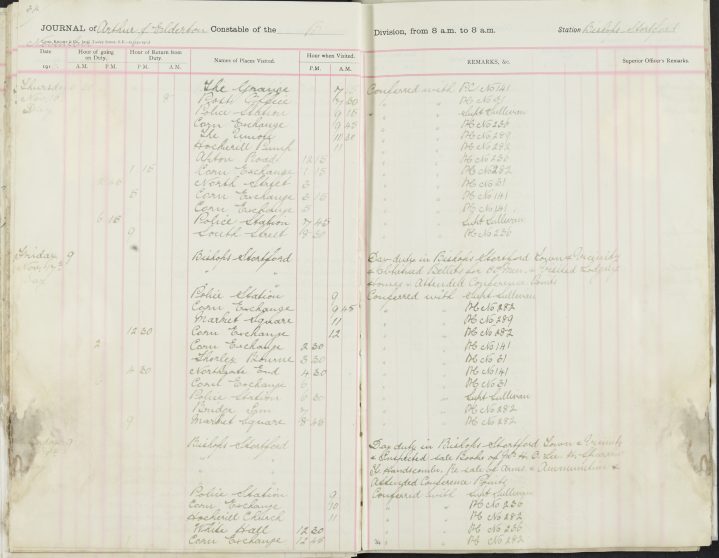 JOURNAL of Arthur J Elderton Constable of the B Division, from 8 a.m. to 8 a.m. Station Bishops Stortford
Date Hour of going on Duty. Hour of Return from Duty. Names of Places Visited. Hour when Visited. REMARKS, &c. Superior Officer's Remarks.
191 A.M. P.M. P.M. A.M. P.M. A.M.
Thursday The Grange 7 Conferred with PC No 141
Nov 8 Post Office 7 30 " " PC No 31
Day Police Station 9 15 " " Supt Sullivan
Corn Exchange 9 45 " " PC No 236
The Union 10 30 " " PC No 289
Hockerill 11 " " PC No 282
Apton Road 12 15 " " PC No 236
1 15 Corn Exchange 1 15 " " PC No 282
North Street 3 " " PC No 31
Corn Exchange 3 15 " " PC No 141
Corn Exchange 5 " " PC No 141
6 15 Police Station 7 45 " " Supt Sullivan
9 South Street 8 30 " " PC No 236
Friday 9 Bishops Stortford Day duty in Bishops Stortford Town & Vicinity
Nov " " & Obtained Billets for Men & Visited Lodging
Day Houses & Attended Conference Points
Police Station 9 Conferred with Supt Sullivan
Corn Exchange 9 45 " " PC No 282
Market Square 11 " " PC No 289
12 30 Corn Exchange 12 " " PC No 282
2 Corn Exchange 2 30 " " PC No 141
Thorley Bourne 3 30 " " PC No 31
4 30 Northgate End 4 30 " " PC No 141
6 Corn Exchange 6 " " PC No 31
Police Station 6 30 " " Supt Sullivan
Bridge 7 " " PC No 282
9 Market Square 8 45 " " PC No 282
Bishops Stortford Day duty in Bishops Stortford Town & Vicinity
" " & Inspected Sale Books of
" " Handscomb. Re sale of Arms & Ammunition &
Attended Conference Points
Police Station 9 Conferred with Supt Sullivan
Corn Exchange 10 " " PC No 236
Hockerill Church 11 " " PC No 282
White Hall 12 30 " " PC No 236
Corn Exchange 12 45 " " PC No 282